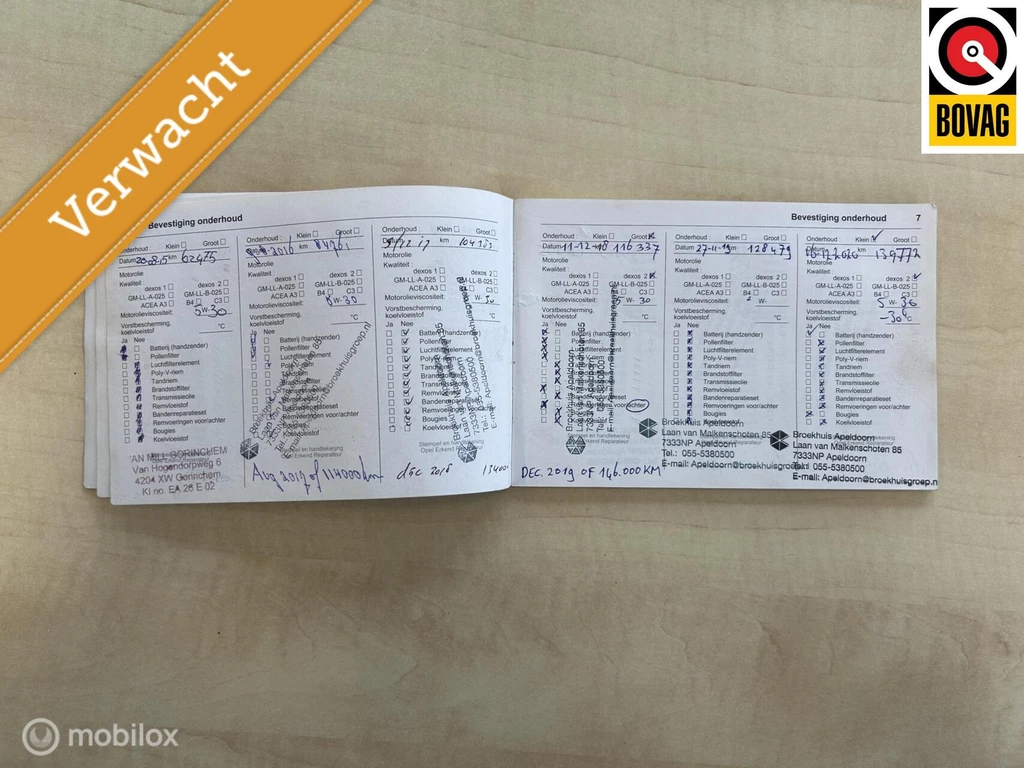 Verwacht
BOVAG
Bevestiging onderhoud
Onderhoud : Klein Groot
Datum 20-08-15 km 62475
Motorolie
Kwaliteit :
dexos 1 dexos 2
GM-LL-A-025 GM-LL-B-025
ACEA A3 B4 C3
Motorolieviscositeit: 5W-30
Vorstbescherming,
koelvloeistof °C
Ja Nee
Batterij (handzender)
Pollenfilter
Luchtfilterelement
Poly-V-riem
Tandriem
Brandstoffilter
Transmissieolie
Remvloeistof
Bandenreparatieset
Remvoeringen voor/achter
Bougies
Koelvloeistof
Van Hogendorpweg 6
4204 XW Gorinchem
KI no. EA 26 E 02
Onderhoud : Klein Groot
2016 km
Motorolie
Kwaliteit :
dexos 1 dexos 2
GM-LL-A-025 GM-LL-B-025
ACEA A3 B4 C3
Motorolieviscositeit: W-30
Vorstbescherming,
koelvloeistof °C
Ja Nee
Batterij (handzender)
Pollenfilter
Luchtfilterelement
Poly-V-riem
Tandriem
Remvoeringen voor/achter
Bougies
Koelvloeistof
Aug 2017 of 114000 km
Onderhoud : Klein Groot
km
Motorolie
Kwaliteit :
dexos 1
GM-LL-A-025
ACEA A3
Motorolieviscositeit:
Vorstbescherming,
koelvloeistof °C
Ja Nee
Batterij (handzender)
Pollenfilter
Luchtfilterelement
Poly-V-riem
Tandriem
Brandstoffilter
Transmissieolie
Remvloeistof
Bandenreparatieset
Remvoeringen voor/achter
Bougies
Koelvloeistof
Stempel en handtekening
Opel Erkend Reparateur
dec 2018
Bevestiging onderhoud 7
Onderhoud : Klein Groot
Datum 11-12-18 km 116337
Motorolie
Kwaliteit :
dexos 1 dexos 2
GM-LL-A-025 GM-LL-B-025
ACEA A3
Motorolieviscositeit: 5 W- 30
Vorstbescherming,
koelvloeistof °C
Ja Nee
Broekhuis Apeldoorn
DEC. 2019 OF 146.000 KM
Onderhoud : Klein Groot
Datum 27-11-19 km 128479
Motorolie
Kwaliteit :
dexos 1 dexos 2
GM-LL-A-025 GM-LL-B-025
ACEA A3 B4 C3
Motorolieviscositeit: W-
Vorstbescherming,
koelvloeistof °C
Ja Nee
Batterij (handzender)
Pollenfilter
Luchtfilterelement
Poly-V-riem
Tandriem
Brandstoffilter
Transmissieolie
Remvloeistof
Bandenreparatieset
Remvoeringen voor/achter
Bougies
Broekhuis Apeldoorn
Laan van Malkenschoten 85
7333NP Apeldoorn
Tel.: 055-5380500
E-mail: Apeldoorn@broekhuisgroep.nl
Onderhoud : Klein Groot
km 139772
Motorolie
Kwaliteit :
dexos 1 dexos 2
GM-LL-A-025 GM-LL-B-025
ACEA A3 B4 C3
Motorolieviscositeit: 5 W-
Vorstbescherming,
koelvloeistof -30 °C
Ja Nee
Batterij (handzender)
Pollenfilter
Luchtfilterelement
Poly-V-riem
Tandriem
Brandstoffilter
Transmissieolie
Remvloeistof
Bandenreparatieset
Remvoeringen voor/achter
Bougies
Koelvloeistof
Broekhuis Apeldoorn
Laan van Malkenschoten 85
7333NP Apeldoorn
Tel. 055-5380500
E-mail: Apeldoorn@broekhuisgroep.nl
mobilox